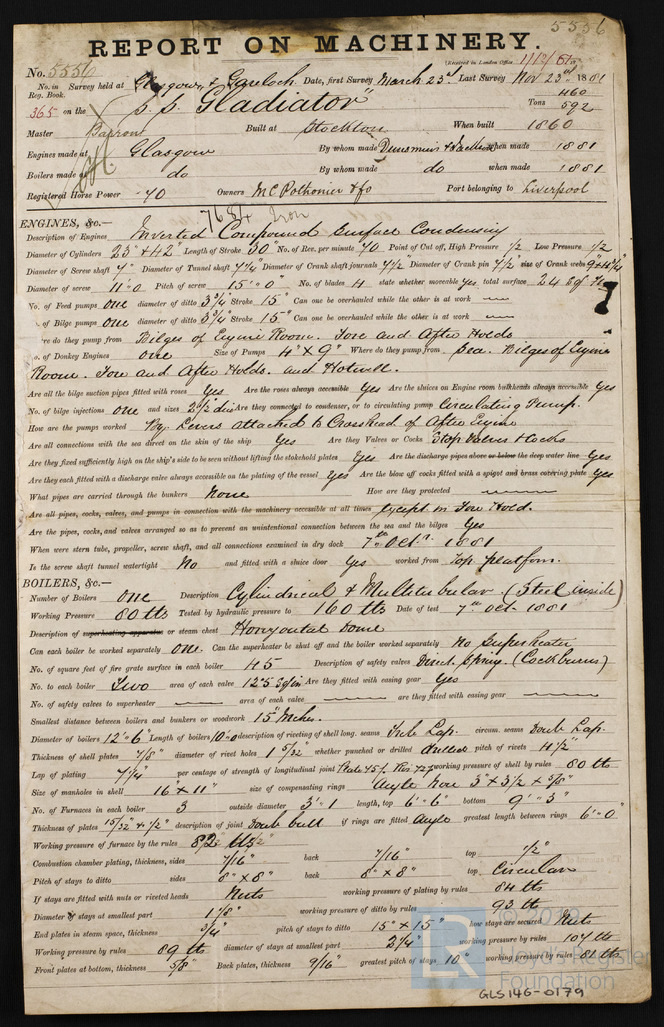 5556
REPORT ON MACHINERY.
No. 5556 (Received in London Office 1/12/81)
No. in Survey held at Glasgow & Gareloch Date, first Survey March 23rd Last Survey Nov 23rd 1881
Reg. Book. 460
365 on the S.S. "Gladiator" Tons 592
Master Barront Built at Stockton When built 1860
Engines made at Glasgow By whom made Dunsmuir & Jackson when made 1881
Boilers made at do By whom made do when made 1881
Registered Horse Power 70 Owners McPothonier & Co Port belonging to Liverpool
7684 Iron
ENGINES, &c.—
Description of Engines Inverted Compound Surface Condensing
Diameter of Cylinders 23" & 42" Length of Stroke 30" No. of Rev. per minute 70 Point of Cut off, High Pressure 1/2 Low Pressure 1/2
Diameter of Screw shaft 7" Diameter of Tunnel shaft 7 1/4" Diameter of Crank shaft journals 7 1/2" Diameter of Crank pin 7 1/2" size of Crank webs
Diameter of screw 11" 0 Pitch of screw 15" 0" No. of blades 4 state whether moveable yes total surface 24 Sq. Ft
No. of Feed pumps one diameter of ditto 3 3/4" Stroke 15" Can one be overhauled while the other is at work —
o. of Bilge pumps one diameter of ditto 3 3/4" Stroke 15" Can one be overhauled while the other is at work —
re do they pump from Bilges of Engine Room. Fore and After Holds
o. of Donkey Engines one Size of Pumps 4" X 9" Where do they pump from Sea. Bilges of Engine
Room. Fore and After Holds. and Hotwell.
Are all the bilge suction pipes fitted with roses Yes Are the roses always accessible Yes Are the sluices on Engine room bulkheads always accessible Yes
No. of bilge injections one and sizes 2 1/2 dia Are they connected to condenser, or to circulating pump Circulating Pump.
How are the pumps worked By Levers attached to Crosshead of After Engine
Are all connections with the sea direct on the skin of the ship Yes Are they Valves or Cocks Stop Valves & Cocks
Are they fixed sufficiently high on the ship's side to be seen without lifting the stokehold plates Yes Are the discharge pipes above or below the deep water line Yes
Are they each fitted with a discharge valve always accessible on the plating of the vessel Yes Are the blow off cocks fitted with a spigot and brass covering plate Yes
What pipes are carried through the bunkers None How are they protected —
Are all pipes, cocks, valves, and pumps in connection with the machinery accessible at all times Except in Fore Hold.
Are the pipes, cocks, and valves arranged so as to prevent an unintentional connection between the sea and the bilges Yes
When were stern tube, propeller, screw shaft, and all connections examined in dry dock 7th Octr. 1881
Is the screw shaft tunnel watertight No and fitted with a sluice door Yes worked from Top platform.
BOILERS, &c.—
Number of Boilers One Description Cylindrical & Multitubular. (Steel inside)
Working Pressure 80 lbs Tested by hydraulic pressure to 160 lbs Date of test 7th Oct 1881
Description of superheating apparatus or steam chest Horizontal Dome
Can each boiler be worked separately One Can the superheater be shut off and the boiler worked separately No Superheater
No. of square feet of fire grate surface in each boiler 45 Description of safety valves Direct Spring. (Cockburns)
No. to each boiler Two area of each valve 12·5 Sq in Are they fitted with easing gear Yes
No. of safety valves to superheater — area of each valve — are they fitted with easing gear —
Smallest distance between boilers and bunkers or woodwork 15 Inches.
Diameter of boilers 12' 6" Length of boilers 10·0 description of riveting of shell long. seams Treb Lap. circum. seams Doub Lap.
Thickness of shell plates 7/8" diameter of rivet holes 1 5/32" whether punched or drilled drilled pitch of rivets 4 1/2"
Lap of plating 7 1/4" per centage of strength of longitudinal joint Plate 75 f. Riv 72 f working pressure of shell by rules 80 lbs
Size of manholes in shell 16" X 11" size of compensating rings Angle Iron 3" X 3 1/2 X 5/8"
No. of Furnaces in each boiler 3 outside diameter 3' 1 length, top 6' 6" bottom 9' 3"
Thickness of plates 15/32" & 1/2" description of joint Doub butt if rings are fitted Angle greatest length between rings 6' 0"
Working pressure of furnace by the rules 82 lbs
Combustion chamber plating, thickness, sides 7/16" back 7/16" top 1/2"
Pitch of stays to ditto sides 8" X 8" back 8" X 8" top Circular
If stays are fitted with nuts or riveted heads Nuts working pressure of plating by rules 84 lbs
Diameter of stays at smallest part 1 1/8" working pressure of ditto by rules 93 lbs
End plates in steam space, thickness 3/4" pitch of stays to ditto 15" X 15" how stays are secured Nuts
Working pressure by rules 89 lbs diameter of stays at smallest part 2 1/4" working pressure by rules 107 lbs
Front plates at bottom, thickness 5/8" Back plates, thickness 9/16" greatest pitch of stays 10" working pressure by rules 81 lbs
LR
Lloyd's Register
Foundation
GLS146-0179